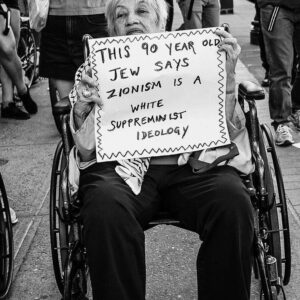 THIS 90 YEAR OLD
JEW SAYS
ZIONISM IS A
WHITE
SUPPREMINIST
IDEOLOGY